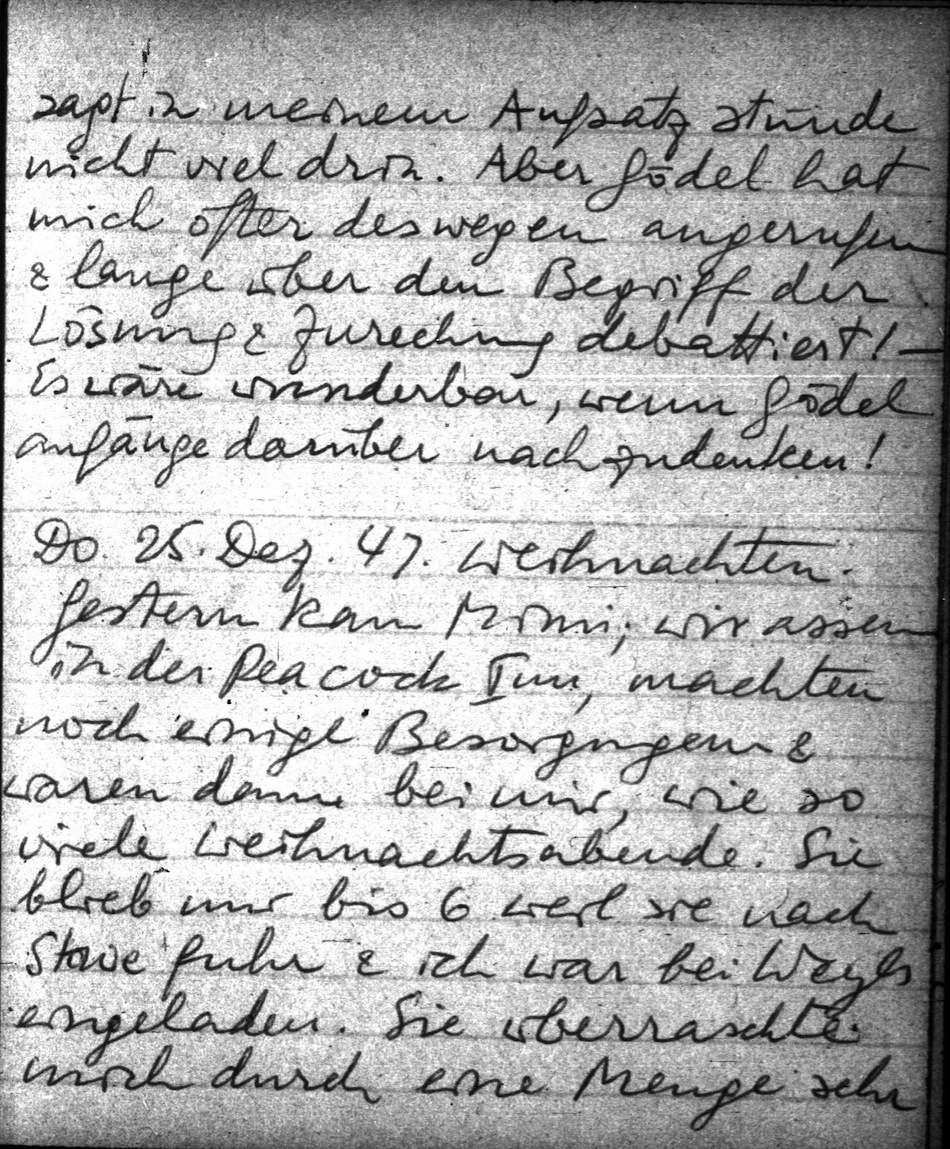 sagt in meinem Aufsatz stünde
nicht viel drin. Aber Gödel hat
mich öfter deswegen angerufen
& lange über den Begriff der
Lösung & Zurechnung debattiert! —
Es wäre wunderbar, wenn Gödel
anfänge darüber nachzudenken!
Do. 25. Dez. 47. Weihnachten.
Gestern kam Mimi; wir assen
in der Peacock Inn, machten
noch einige Besorgungen &
waren dann bei mir, wie so
viele Weihnachtsabende. Sie
blieb nur bis 6 weil sie nach
Stowe fuhr & ich war bei Weyls
eingeladen. Sie überraschte
mich durch eine Menge sehr